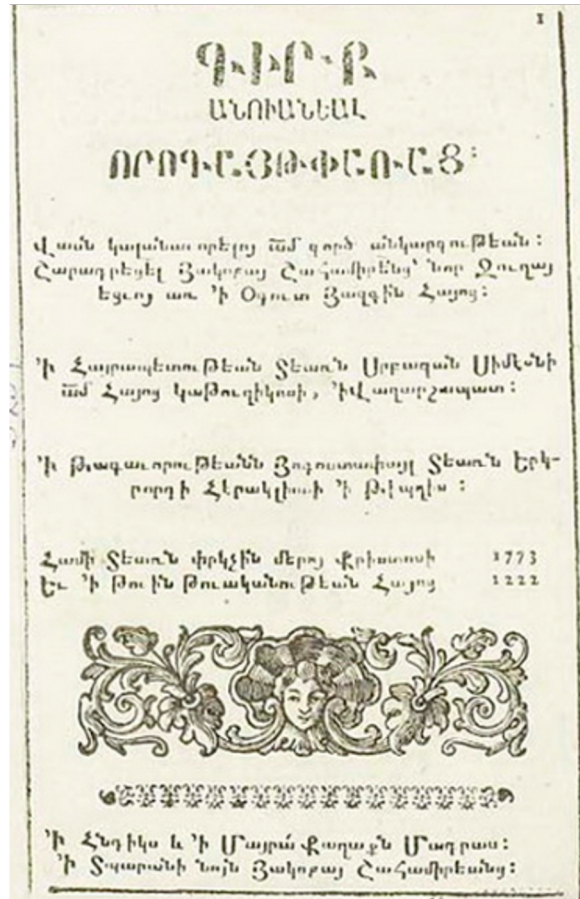 1
ԳԻՐՔ
ԱՆՈՒԱՆԵԱԼ
ՈՐՈԳԱՅԹ ՓԱՌԱՑ։
Վասն կալանաւորելոյ ամ գործ անկարգութեան։
Շարադրեցեալ Յակոբայ Շահամիրենց՝ նոր Ջուղայ
եցւոյ առ ՚ի Օգուտ Յազգին Հայոց։
՚Ի Հայրապետութեան Տեառն Սրբազան Սիմէօնի
ամ Հայոց կաթուղիկոսի, ՚ի Վաղարշապատ։
՚Ի թագաւորութեանն Յոգոստափառ Տեառն Երկ-
րորդի Հէրակլիոսի ՚ի Թիպղիս ։
Համի Տեառն փրկչին մերոյ Քրիստոսի 1773
Եւ ՚ի Թուին Թուականութեան Հայոց 1222
՚Ի Հնդիկս և ՚ի Մայրա Քաղաքն Մադրաս։
՚Ի Տպարանի նոյն Յակոբայ Շահամիրեանց։